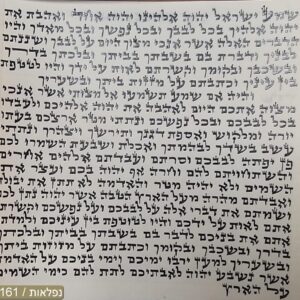 שמע ישראל יהוה אלהינו יהוה אחד ואהבת את
יהוה אלהיך בכל לבבך ובכל נפשך ובכל מאדך והיו
הדברים האלה אשר אנכי מצוך היום על לבבך ושננתם
לבניך ודברת בם בשבתך בביתך ובלכתך בדרך
ובשכבך ובקומך וקשרתם לאות על ידך והיו לטטפת
בין עיניך וכתבתם על מזזות ביתך ובשעריך
והיה אם שמע תשמעו אל מצותי אשר אנכי
מצוה אתכם היום לאהבה את יהוה אלהיכם ולעבדו
בכל לבבכם ובכל נפשכם ונתתי מטר ארצכם בעתו
יורה ומלקוש ואספת דגנך ותירשך ויצהרך ונתתי
עשב בשדך לבהמתך ואכלת ושבעת השמרו לכם
פן יפתה לבבכם וסרתם ועבדתם אלהים אחרים
והשתחויתם להם וחרה אף יהוה בכם ועצר את
השמים ולא יהיה מטר והאדמה לא תתן את יבולה
ואבדתם מהרה מעל הארץ הטבה אשר יהוה נתן לכם
ושמתם את דברי אלה על לבבכם ועל נפשכם וקשרתם
אתם לאות על ידכם והיו לטוטפת בין עיניכם ולמדתם
אתם את בניכם לדבר בם בשבתך בביתך ובלכתך
בדרך ובשכבך ובקומך וכתבתם על מזוזות ביתך
ובשעריך למען ירבו ימיכם וימי בניכם על האדמה
אשר נשבע יהוה לאבתיכם לתת להם כימי השמים
על הארץ
נפלאות / 161